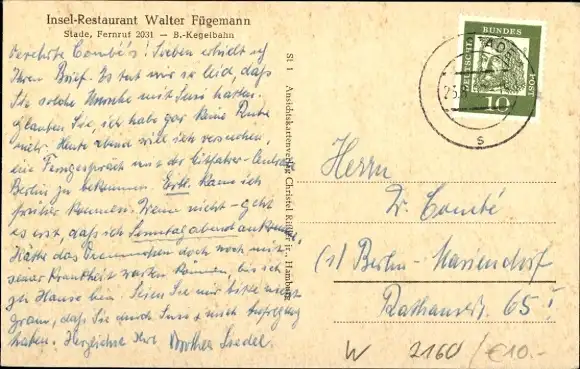 Insel-Restaurant Walter Fügemann
Stade, Fernruf 2031 — B.-Kegelbahn
Verehrte Combé's! Soeben erhielt ich
Ihren Brief. Es tut mir so leid, daß
Sie solche Unruhe mit Susi hatten.
Glauben Sie, ich habe gar keine Ruhe
mehr. Heute Abend will ich versuchen,
ein Ferngespräch mit der Mitfahrer-Centrale
Berlin zu bekommen. Evtl. kann ich
früher kommen. Wenn nicht - geht
es erst, daß ich Sonntag abend ankomme.
Hätte das doch noch mit
seiner Krankheit warten können, bis ich
zu Hause bin. Seien Sie mir bitte nicht
gram, daß Sie durch Susi + mich Aufregung
haten. Herzlichst Ihre Dorothea
St 1 Ansichtskartenverlag Christel Rißler jr., Hamburg
DEUTSCHE BUNDESPOST
10
STADE
25.
s
Herrn
Dr. Combé
(1) Berlin-Mariendorf
Rathausstr. 65 I
W 2160 / €10.-